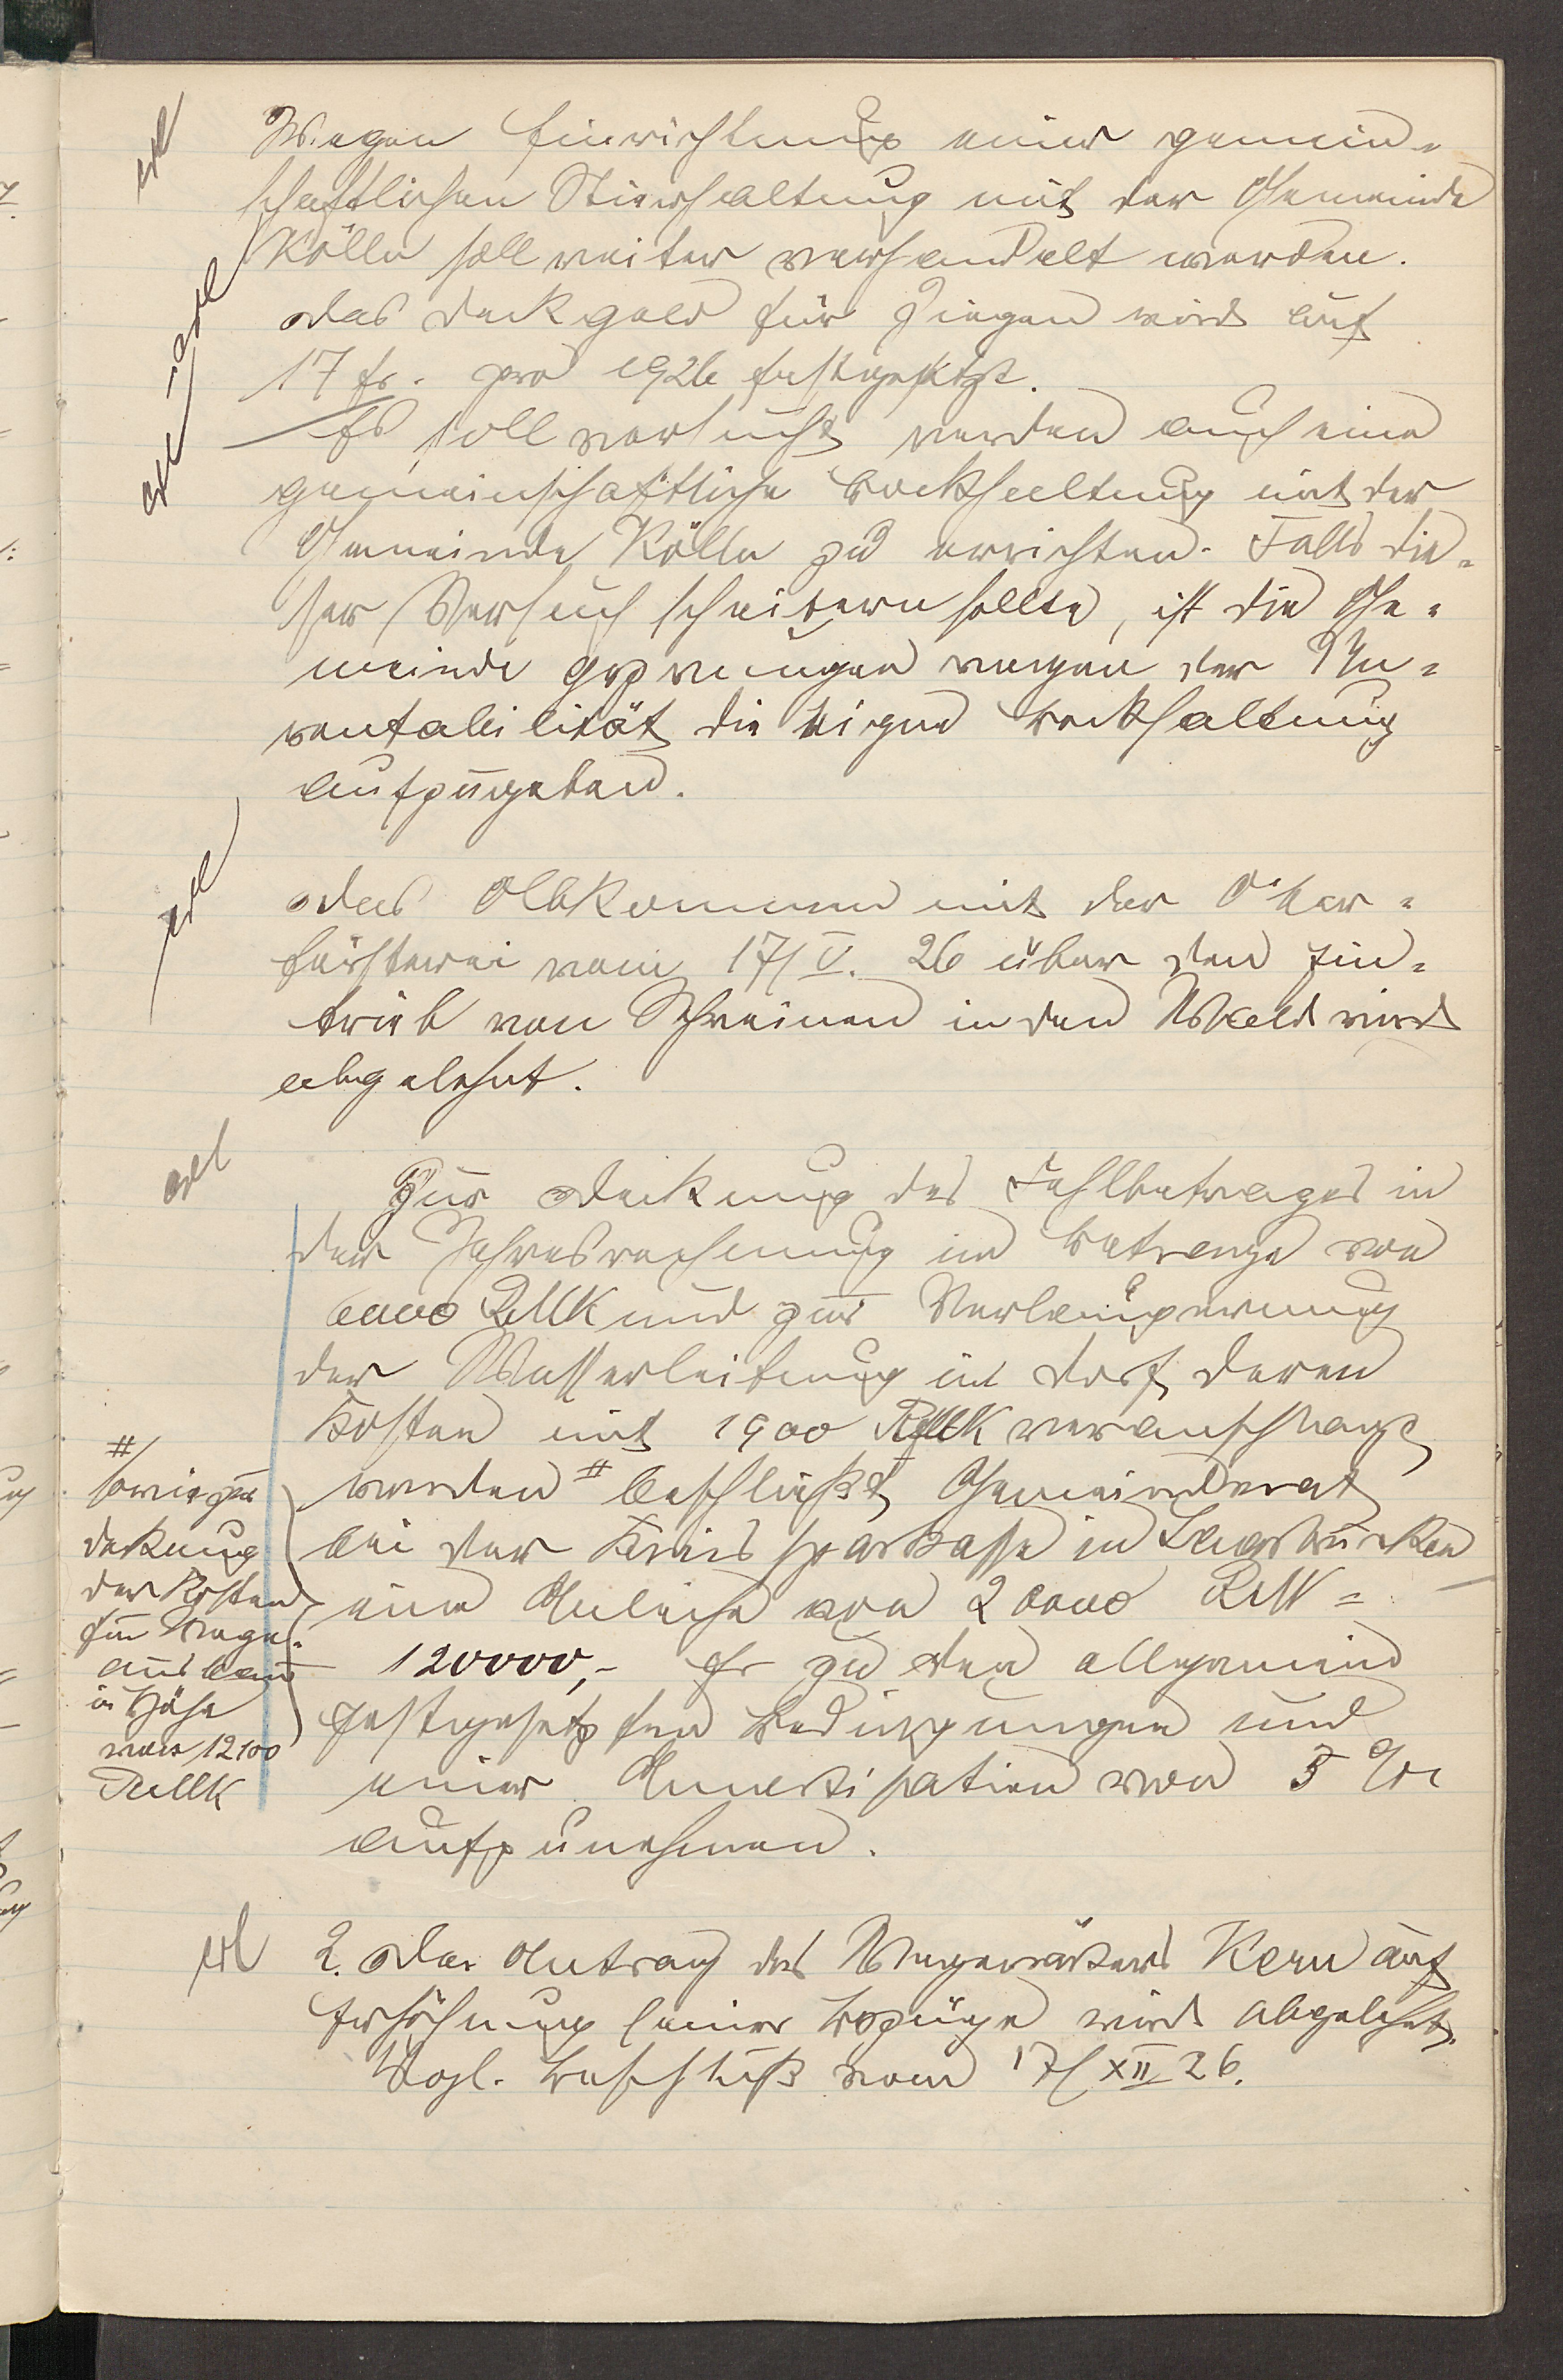 erl
Wegen Einrichtung einer gemein-
schaftlichen Stierhaltung mit der Gemeinde
Kölln soll weiter verhandelt werden.
erl
Das Deckgeld für Ziegen wird auf
17 fr. pro 1926 festgesetzt.
erl
Es soll versucht werden auch eine
gemeinschaftliche Bockhaltung mit der
Gemeinde Kölln zu errichten. Falls die-
ser Versuch scheitern sollte, ist die Ge-
meinde gezwungen wegen der Un-
rentabilität die Bockhaltung
aufzugeben.
erl
Das Abkommen mit der Ober-
försterei vom 17/V. 26 über den Ein-
trieb von Schweinen in den Wald wird
abgelehnt.
erl
Zur Deckung des Fehlbetrages in
der Jahresrechnung im Betrage von
6000 RMK und zur Verlängerung
der Wasserleitung im Dorf, deren
Kosten mit 1900 RMK veranschlagt
werden # beschließt Gemeinderat
bei der Kreissparkasse in Saarbrücken
eine Anleihe von 20000 RM =
120000,- fr zu den allgemein
festgesetzten Bedingungen und
einer Amortisation von 5 %
aufzunehmen.
#
sowie zur
Deckung
der Kosten
für Wege-
ausbau
in Höhe
von 12100
RMK
erl
2. Der Antrag des Wegewärters Kern auf
Erhöhung seiner Bezüge wird abgelehnt.
Vergl. Beschluß vom 17/XII 26.